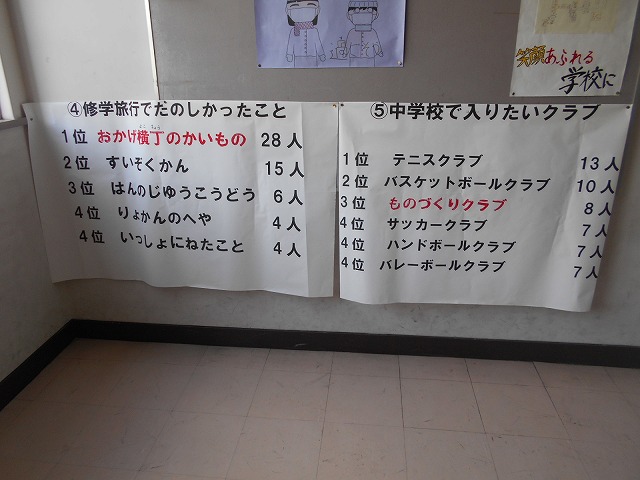 笑顔あふれる
学校に
④修学旅行でだのしかったこと
1位 おかげ横丁のかいもの 28人
2位 すいぞくかん 15人
3位 はんのじゆうこうどう 6人
4位 りょかんのへや 4人
4位 いっしょにねたこと 4人
⑤中学校で入りたいクラブ
1位 テニスクラブ 13人
2位 バスケットボールクラブ 10人
3位 ものづくりクラブ 8人
4位 サッカークラブ 7人
4位 ハンドボールクラブ 7人
4位 バレーボールクラブ 7人